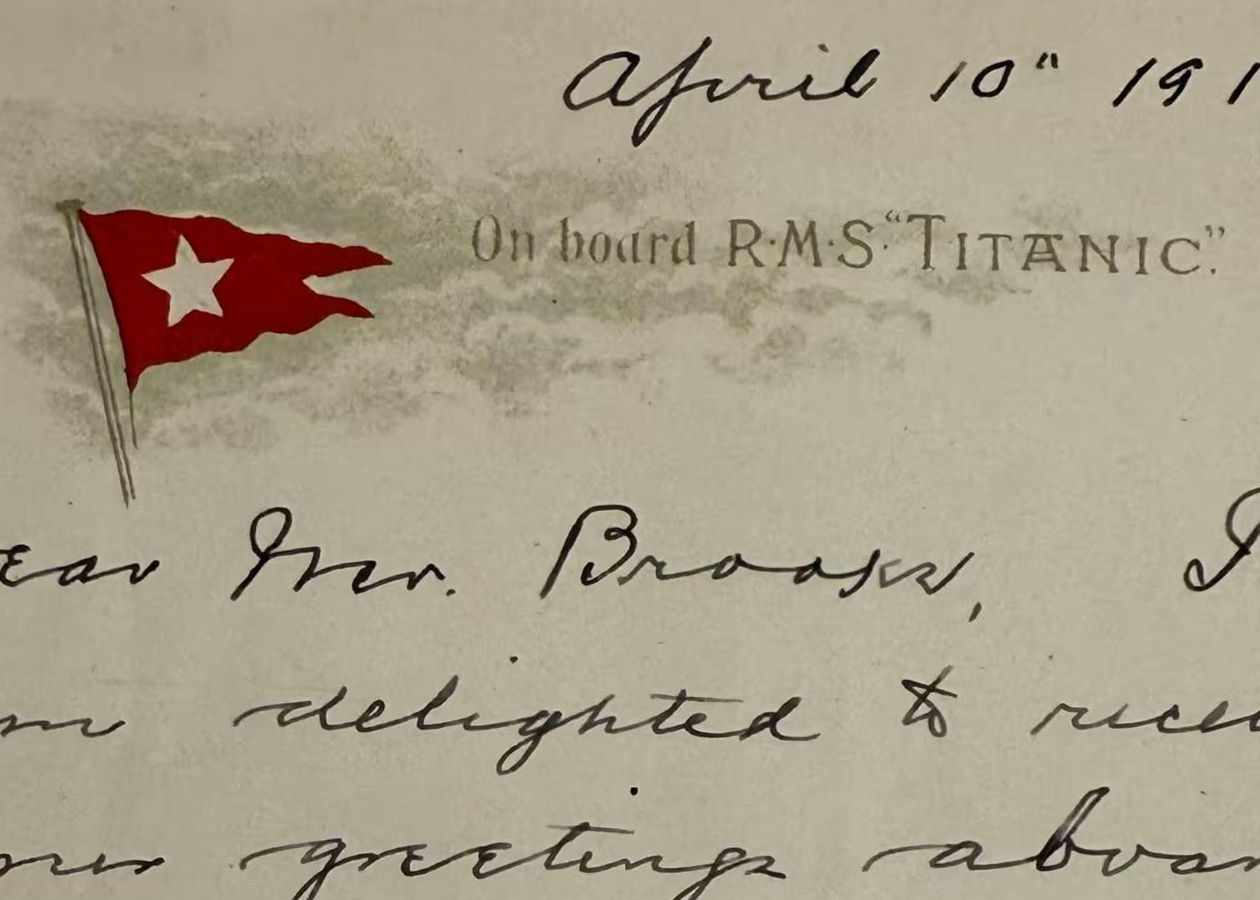 April 10" 191
On board R·M·S· "TITANIC".
ear Mr. Brooks, I
m delighted to recei
our greetings aboar